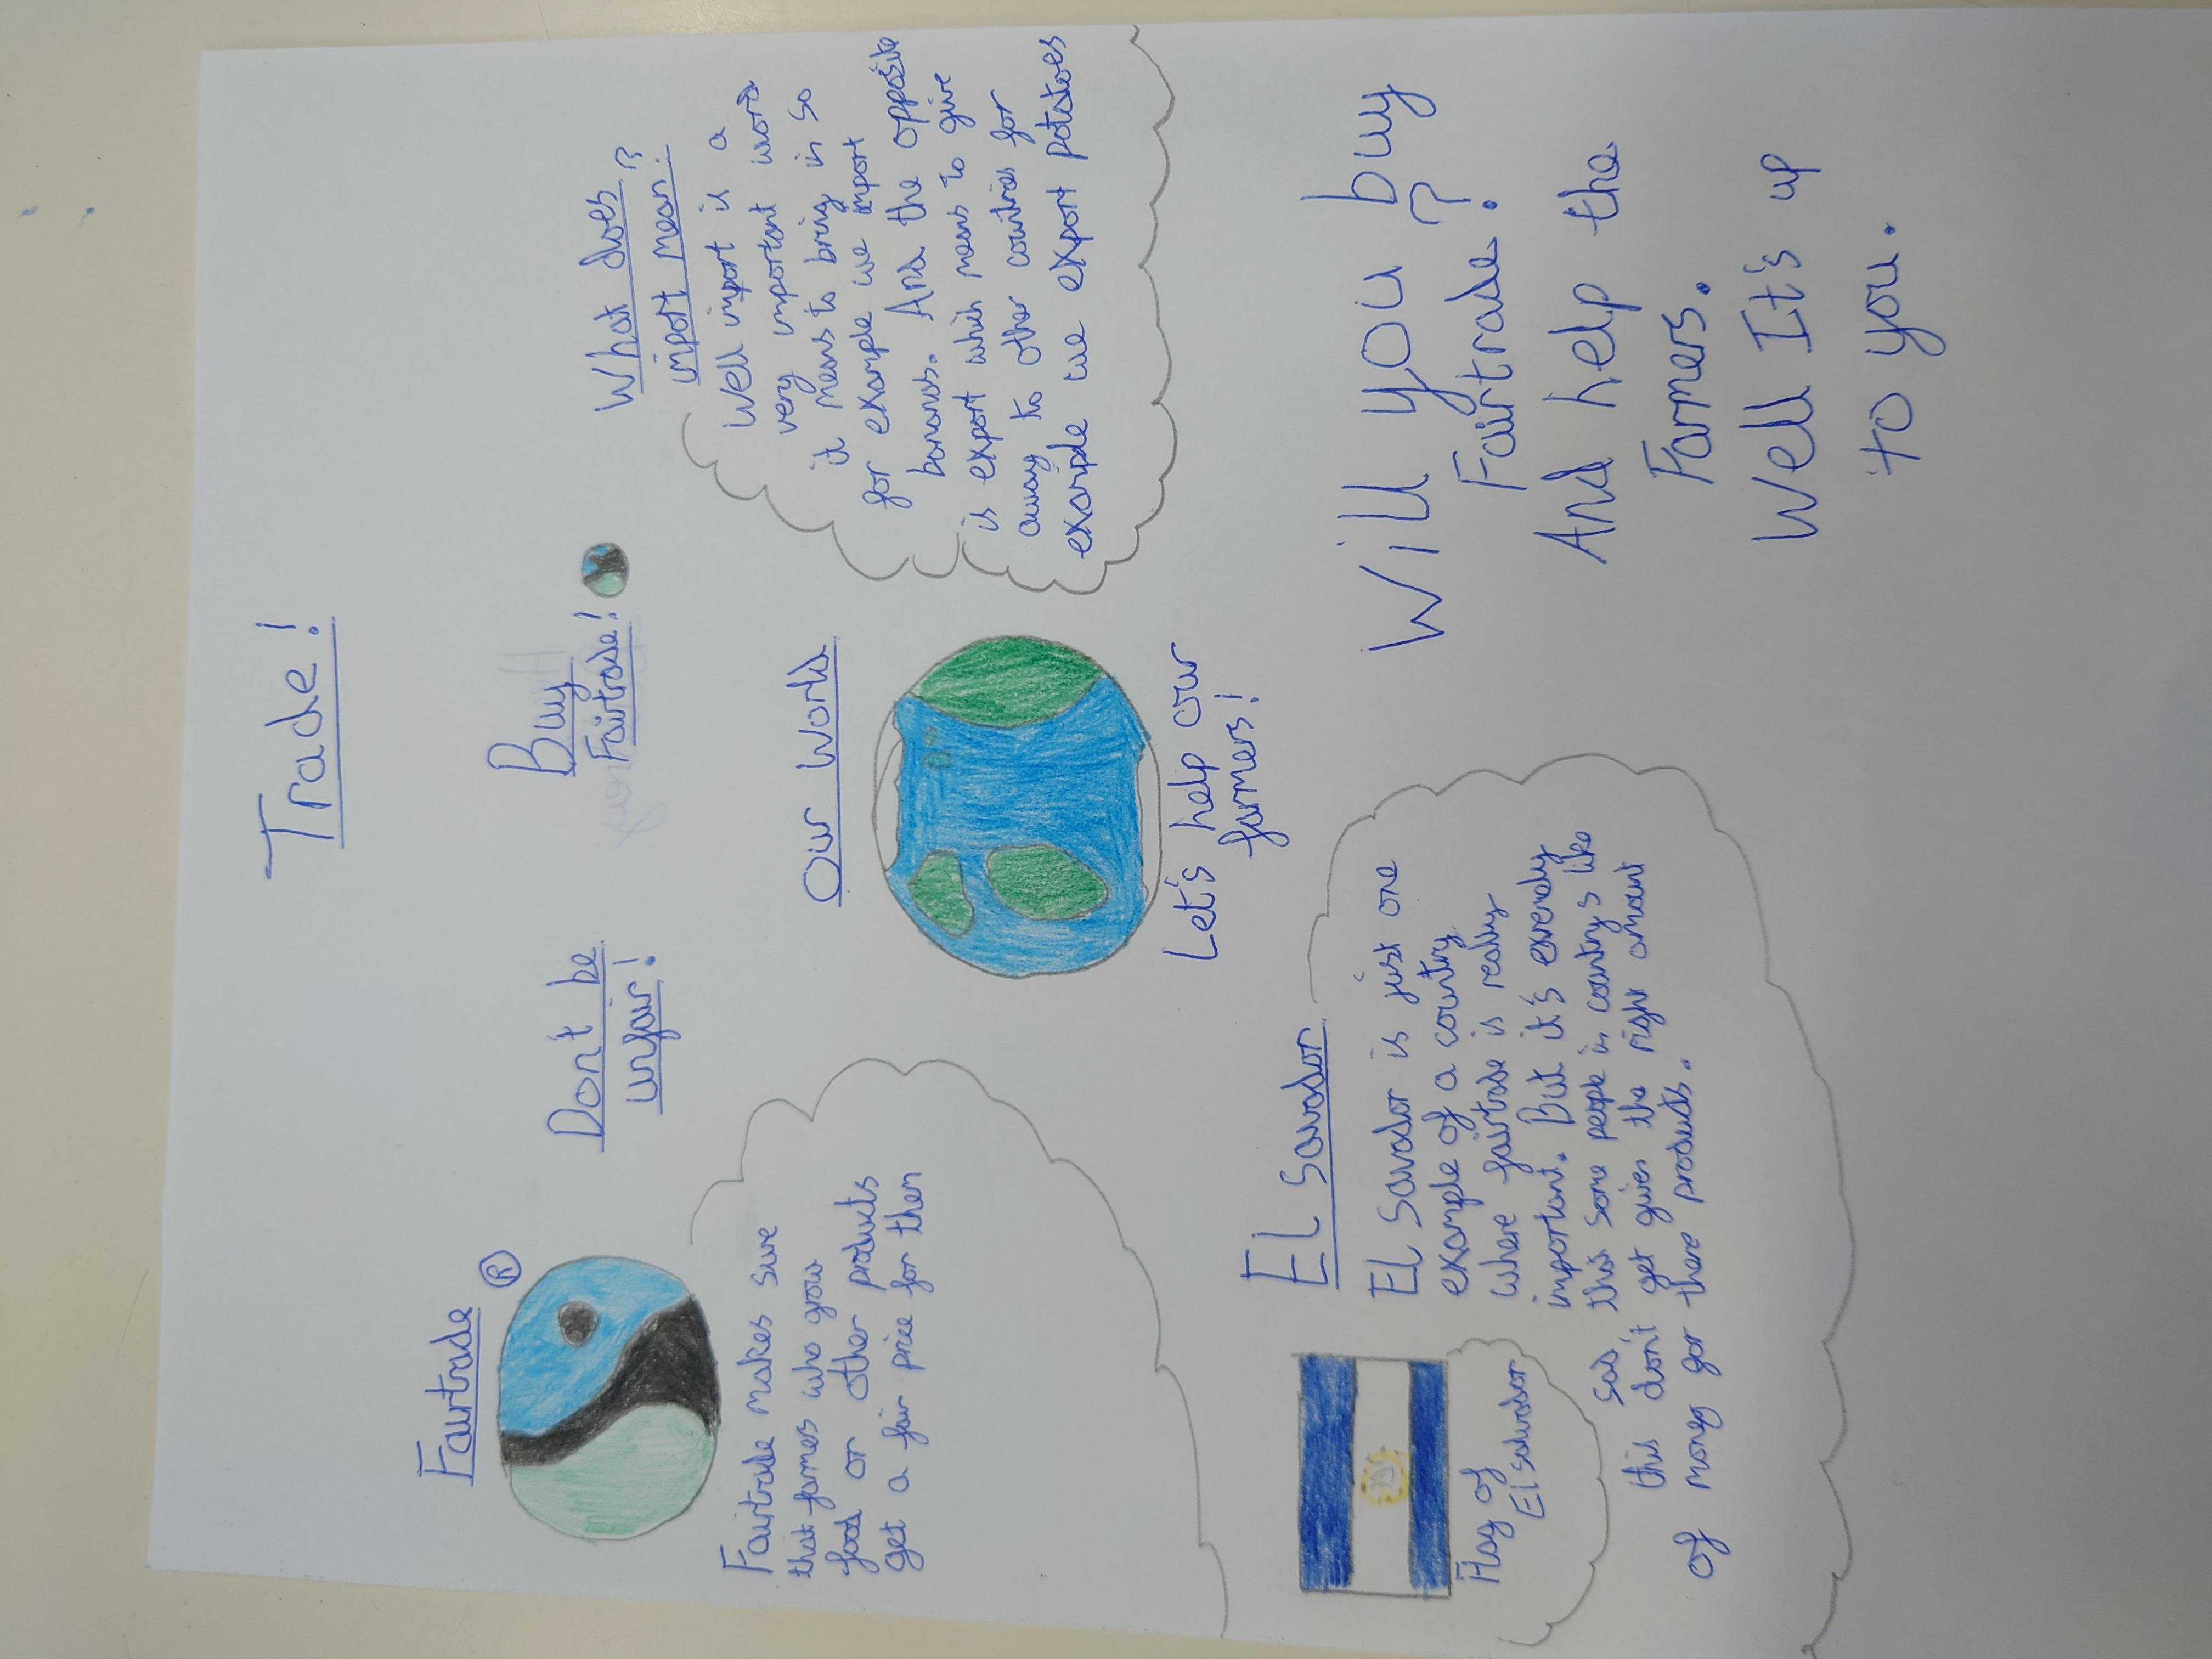 Trade!
Fairtrade
®
Don't be
unfair!
Buy
Fairtrade!
What does
import mean?
Fairtrade makes sure
that farmes who grow
food or other products
get a fair price for them
Our World
Let's help our
farmers!
Well import is a
very important word
it means to bring in so
for example we import
bananas. And the opposite
is export which means to give
away to other countries for
example we export potatoes
El Savador
Flag of
El salvador
El Savador is just one
example of a country
where fairtrade is really
important. But it's
sad this some people in countrys like
this don't get given the right amount
of money for there products.
Will you buy
Fairtrade?
And help the
Farmers.
Well It's up
to you.